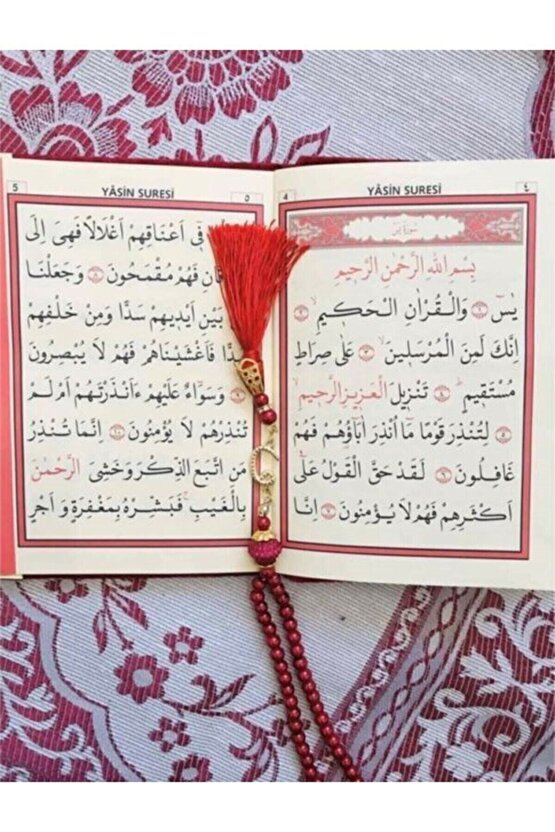 YÂSİN SURESİ
٤
4
سورة يس
بِسْمِ اللهِ الرَّحْمٰنِ الرَّحِيمِ
يٰسٓ ﴿١﴾ وَالْقُرْاٰنِ الْحَكِيمِ ﴿٢﴾
اِنَّكَ لَمِنَ الْمُرْسَلِينَ ﴿٣﴾ عَلٰى صِرَاطٍ
مُسْتَقِيمٍ ﴿٤﴾ تَنْزِيلَ الْعَزِيزِ الرَّحِيمِ
﴿٥﴾ لِتُنْذِرَ قَوْمًا مَٓا اُنْذِرَ اٰبَٓاؤُهُمْ فَهُمْ
غَافِلُونَ ﴿٦﴾ لَقَدْ حَقَّ الْقَوْلُ عَلٰٓى
اَكْثَرِهِمْ فَهُمْ لَا يُؤْمِنُونَ ﴿٧﴾ اِنَّا
YÂSİN SURESİ
٥
5
فِٓى اَعْنَاقِهِمْ اَغْلَالًا فَهِىَ اِلَى
فَهُمْ مُقْمَحُونَ ﴿٨﴾ وَجَعَلْنَا
بَيْنِ اَيْدِيهِمْ سَدًّا وَمِنْ خَلْفِهِمْ
فَاَغْشَيْنَاهُمْ فَهُمْ لَا يُبْصِرُونَ
وَسَوَٓاءٌ عَلَيْهِمْ ءَاَنْذَرْتَهُمْ اَمْ لَمْ
تُنْذِرْهُمْ لَا يُؤْمِنُونَ ﴿١٠﴾ اِنَّمَا تُنْذِرُ
مَنِ اتَّبَعَ الذِّكْرَ وَخَشِىَ الرَّحْمٰنَ
بِالْغَيْبِ فَبَشِّرْهُ بِمَغْفِرَةٍ وَ اَجْرٍ